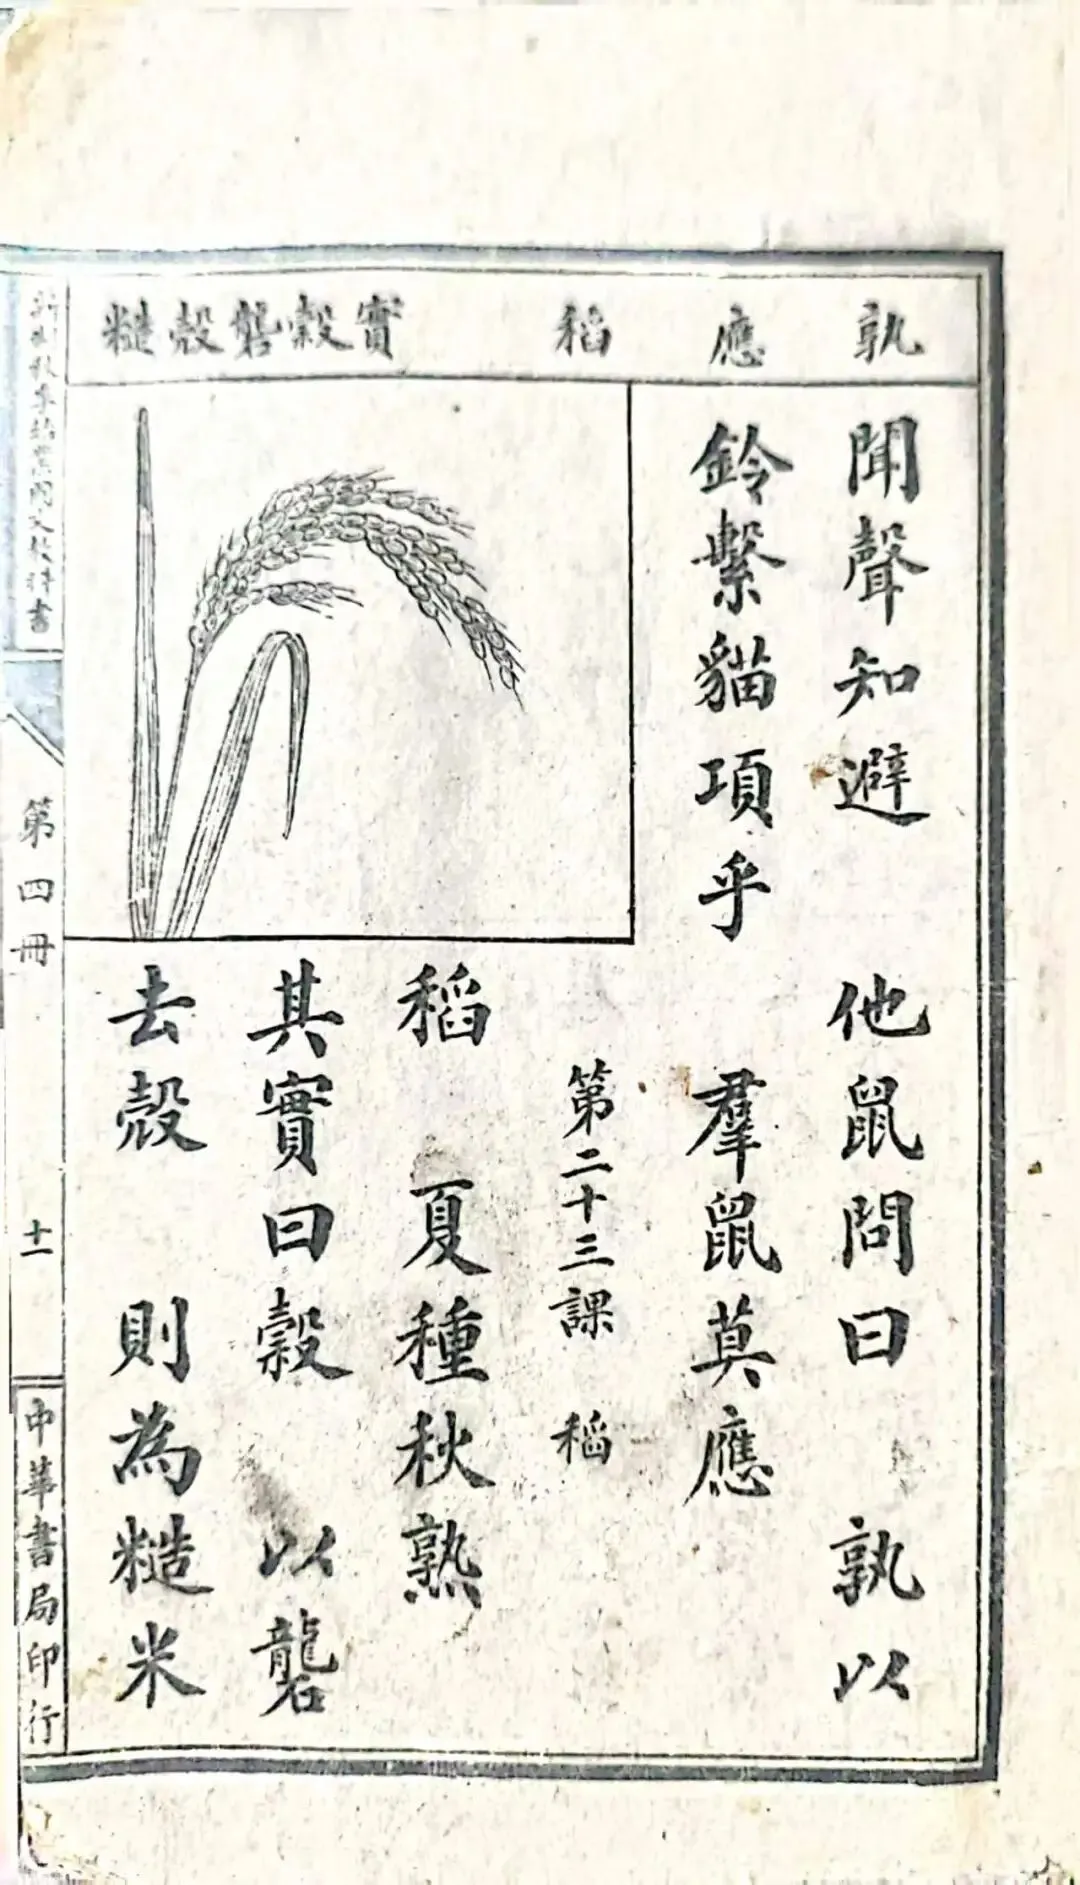 孰
應
稻
實穀礱殻糙
聞聲知避 他鼠問曰 孰以
鈴繫貓項乎 羣鼠莫應
第二十三課 稻
稻 夏種秋熟
其實曰穀 以礱
去殻 則為糙米
秋季始業國文教科書
第四冊
十一
中華書局印行